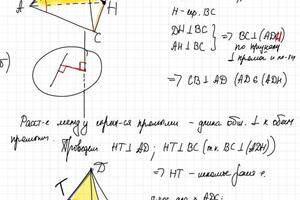 A H
C
H - сер. BC
DH ⊥ BC
AH ⊥ BC
⇒ BC ⊥ (ADH)
по признаку
⊥
⇒ CB ⊥ AD (AD ∈ (ADH)
б)
Расст-е между скрещ-ся прямыми - длина общ. ⊥ к обеим
прямым. Проведем HT ⊥ AD; HT ⊥ BC (т.к. BC ⊥ (ADH))
⇒ HT - искомое расст-е.
D
T
ADC: